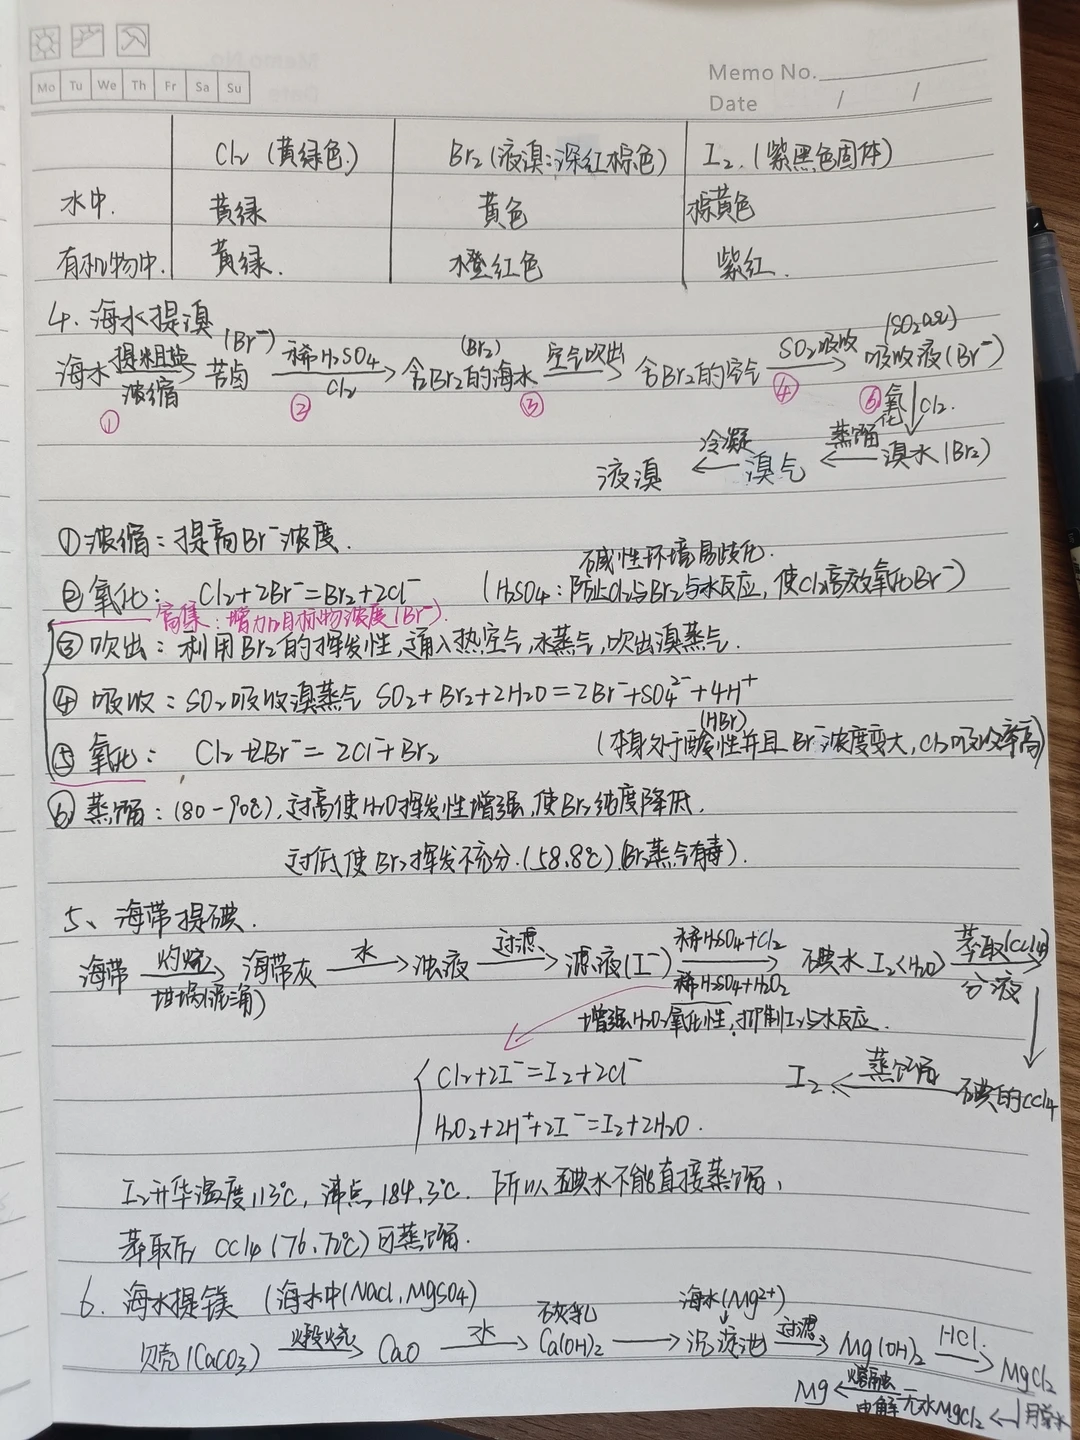 Mo Tu We Th Fr Sa Su
Memo No.
Date / /
Cl₂ (黄绿色.) Br₂ (液溴:深红棕色) I₂. (紫黑色固体)
水中. 黄绿 黄色 棕黄色
有机物中. 黄绿. 橙红色 紫红.
4. 海水提溴
海水 →(提粗盐 浓缩) 苦卤 (Br⁻) →(稀H₂SO₄ Cl₂) 含Br₂的海水 (Br₂) →(空气吹出) 含Br₂的空气 →(SO₂吸收) 吸收液(Br⁻)
① ② ③ ④ ⑥ 氧化 ↓Cl₂.
液溴 ←(冷凝) 溴气 ←(蒸馏) 溴水(Br₂)
①浓缩:提高Br⁻浓度.
碱性环境易歧化.
②氧化: Cl₂+2Br⁻=Br₂+2Cl⁻ (H₂SO₄:防止Cl₂与Br₂与水反应,使Cl₂高效氧化Br⁻)
富集:增加目标物浓度(Br⁻).
③吹出:利用Br₂的挥发性,通入热空气,水蒸气,吹出溴蒸气.
④吸收:SO₂吸收溴蒸气 SO₂+Br₂+2H₂O=2Br⁻+SO₄²⁻+4H⁺
(HBr)
⑤氧化: Cl₂+2Br⁻=2Cl⁻+Br₂ (本身处于酸性并且Br⁻浓度变大,Cl₂吸收率高)
⑥蒸馏:(80-90℃),过高使H₂O挥发性增强,使Br₂纯度降低.
过低使Br₂挥发不充分.(58.8℃)(Br₂蒸气有毒).
5、海带提碘.
海带 →(灼烧 坩埚) 海带灰 →(水) 浊液 →(过滤) 滤液(I⁻) →(稀H₂SO₄+Cl₂ 稀H₂SO₄+H₂O₂) 碘水 I₂(H₂O) →(萃取(CCl₄) 分液)
增强H₂O₂氧化性,抑制I₂与水反应.
Cl₂+2I⁻=I₂+2Cl⁻ I₂ ←(蒸馏) 碘的CCl₄
H₂O₂+2H⁺+2I⁻=I₂+2H₂O.
I₂升华温度113℃,沸点184.3℃. 所以碘水不能直接蒸馏,
萃取后 CCl₄(76.72℃)可蒸馏.
6. 海水提镁 (海水中(NaCl,MgSO₄)
石灰乳 海水(Mg²⁺)
贝壳(CaCO₃) →(煅烧) CaO →(水) Ca(OH)₂ → 沉淀池 →(过滤) Mg(OH)₂ →(HCl.) MgCl₂
Mg ←(熔融 电解) 无水MgCl₂ ←